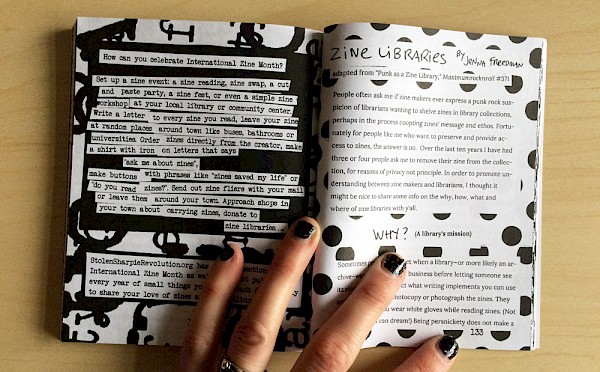 How can you celebrate International Zine Month?
Set up a zine event: a zine reading, zine swap, a cut
and paste party, a zine fest, or even a simple zine
workshop at your local library or community center.
Write a letter to every zine you read, leave your zine
at random places around town like buses, bathrooms or
universities. Order zines directly from the creator, make
a shirt with iron on letters that says
"ask me about zines",
make buttons with phrases like "zines saved my life" or
"do you read zines?". Send out zine fliers with your mail
or leave them around your town. Approach shops in
your town about carrying zines, donate to
zine libraries
StolenSharpieRevolution.org has
International Zine Month as we
every year of small things you
to share your love of zines
ZINE LIBRARIES BY JENNA FREEDMAN
adapted from "Punk as a Zine Library," Maximumrocknroll #371
People often ask me if zine makers ever express a punk rock sus-
picion of librarians wanting to shelve zines in library collections,
perhaps in the process coopting zines' message and ethos. Fortu-
nately for people like me who want to preserve and provide ac-
cess to zines, the answer is no. Over the last ten years I have had
three or four people ask me to remove their zine from the collec-
tion, for reasons of privacy not principle. In order to promote un-
derstanding between zine makers and librarians, I thought it
might be nice to share some info on the why, how, what and
where of zine libraries with y'all.
WHY? (A library's mission)
Sometimes when a library–or more likely an ar-
chive– business before letting someone see
its what writing implements you can use
photocopy or photograph the zines. They
you wear white gloves while reading zines. (Not
can dream!) Being persnickety does not make a
133